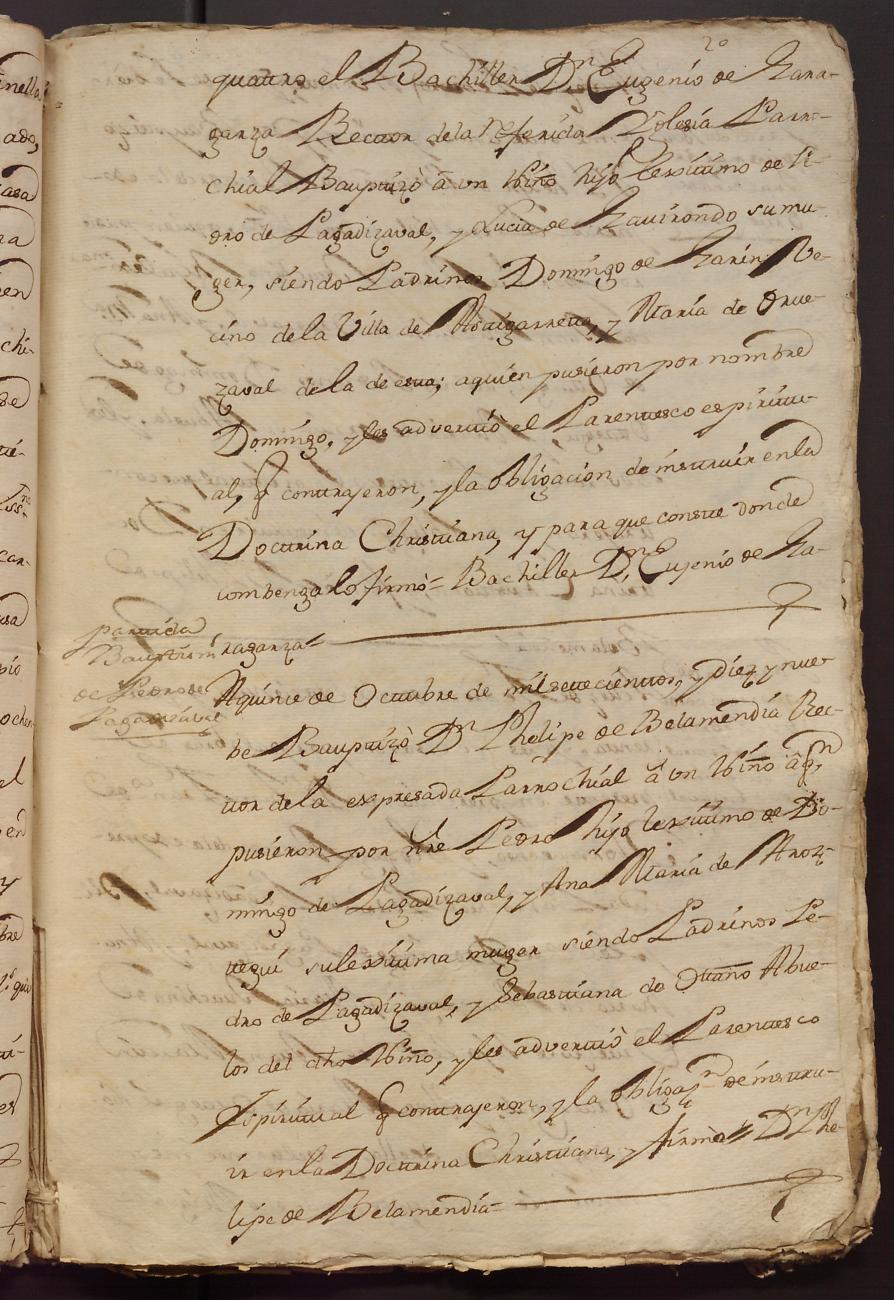 20
quattro el Bachiller Dn Eugenio de Zara-
ganza Rector dela referida Yglesia Parr-
chial Baptizò â vn Niño hijo lexitimo de Pe-
dro de Lagadizaval, y Lucia de Zavirondo su mu-
ger, siendo Padrinos Domingo de Zarin Ve-
cino dela Villa de Astigarreta, y Maria de Orue-
zaval dela de esta; aquien pusieron por nombre
Domingo, y les advertiò el Parentesco espiritu-
al, q contrajeron, y la obligacion de instruir enla
Doctrina Christiana, y para que conste donde
combenga lo firmò = Bachiller Dn Eujenio de Za-
raganza =
partida
Baptism
de Pedro de
Lagadizaval
A quince de Octubre de mil setecientos, y diez y nue
be Baptizò Dn Phelipe de Belamendia Rec-
tor dela expresada Parrochial â vn Niño âqn
pusieron por nre Pedro hijo lexitimo de Do-
mingo de Lagadizaval, y Ana Maria de Aroz-
tegui su lexitima muger siendo Padrinos Pe-
dro de Lagadizaval, y Sebastiana de Ottaño Abue-
los del dho Niño, y les advertiò el Parentesco
Espiritual q contrajeron, y la obligazn de instru-
ir enla Doctrina Christiana, y firmò = Dn Phe-
lipe de Belamendia =